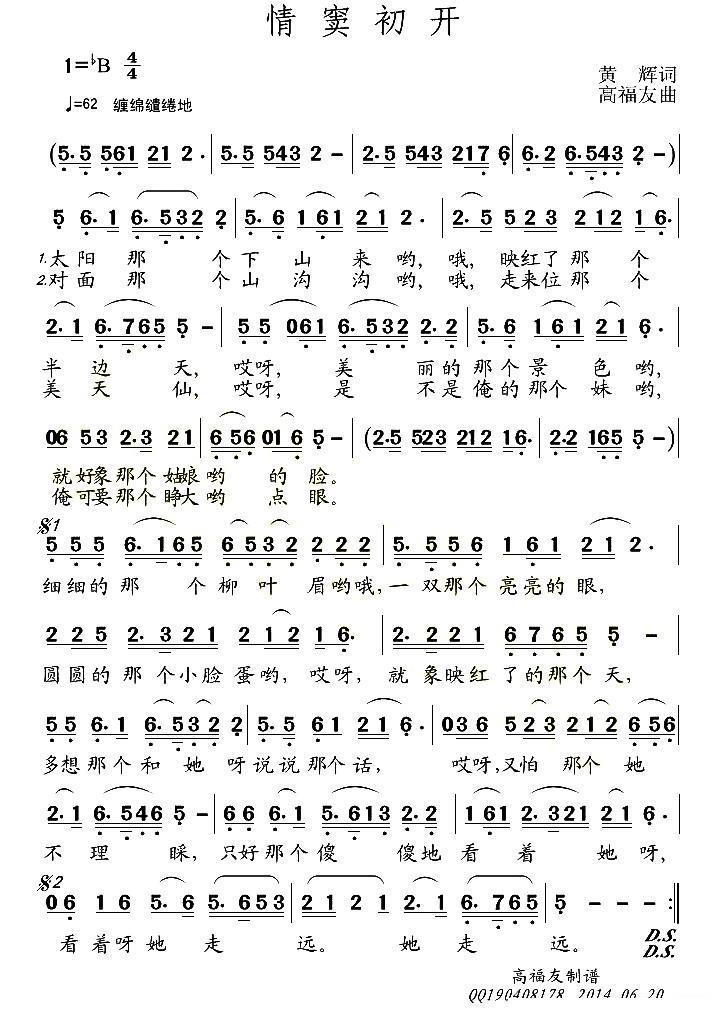 情窦初开
1=♭B 4/4
黄 辉词
高福友曲
♩=62 缠绵缱绻地
(5.5 561 21 2. | 5.5 543 2 - | 2.5 543 217 6 | 6.2 6.543 2 - )
5 6.1 6.532 2 | 5.6 161 21 2. | 2.5 523 212 16.
1.太阳那 个下山来哟,哦,映红了那个
2.对面那 个山沟沟哟,哦,走来位那个
2.1 6.765 5 - | 55 061 6.532 2.2 | 5.6 161 21 6. |
半边天,哎呀,美 丽的那个景色哟,
美天仙,哎呀,是 不是俺的那个妹哟,
06 53 2.3 21 | 656 016 5 - | (2.5 523 212 16. | 2.2 165 5 - )
就好象那个姑娘哟 的脸。
俺可要那个睁大哟 点眼。
𝄋1
555 6.165 6532 222 | 5.556 161 21 2. |
细细的那 个柳叶眉哟哦,一双那个亮亮的眼,
225 2.321 212 16. | 2.221 6765 5 - |
圆圆的那个小脸蛋哟,哎呀,就象映红了的那个天,
55 6.1 6.532 2 | 5.5 61 21 6. | 036 523 212 656 |
多想那个和她呀说说那个话,哎呀,又怕那个她
2.1 6.546 5 - | 66 6.1 5.613 2.2 | 161 2.321 21 6. |
不理睬,只好那个傻 傻地看着她呀,
𝄋2
06 16 5.6 5.653 | 2121 2.1 6.765 | 5 - - - :||
看着呀她走 远。她走 远。
D.S.
D.S.
高福友制谱
QQ190408178 2014.06.20